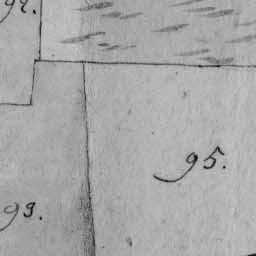 92.
95.
93.